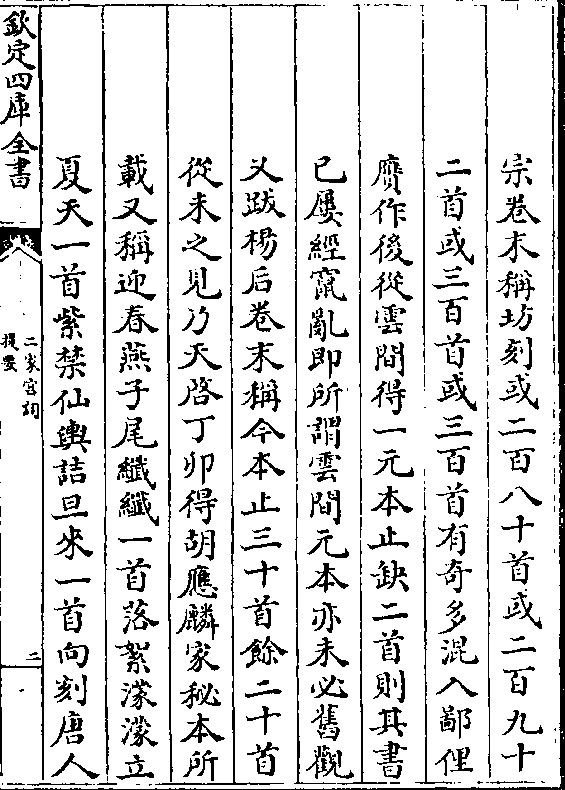 宗卷末稱坊刻或二百八十首或二百九十
二首或三百首或三百首有奇多混入鄙俚
贗作後從雲間得一元本止缺二首則其書
已屢經竄亂即所謂雲間元本亦未必舊觀
又跋楊后卷末稱今本止三十首餘二十首
從未之見乃天啓丁卯得胡應麟家秘本所
載又稱迎春燕子尾纖纖一首落絮濛濛立
夏天一首紫禁仙輿詰旦來一首向刻唐人
欽定四庫全書
二家宮詞
提要
二